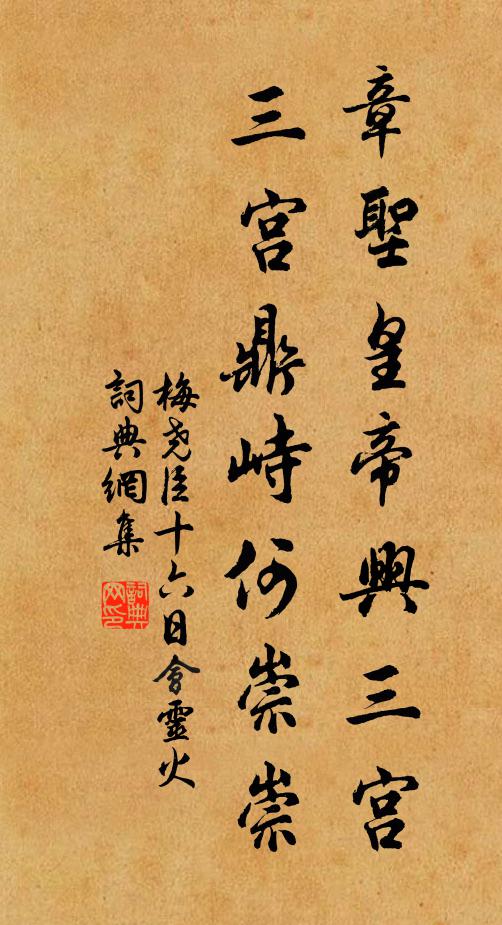 章聖皇帝興三宮
三宮鼎峙何崇崇
梅堯臣十六日會靈火
詞典網集
詞典網印